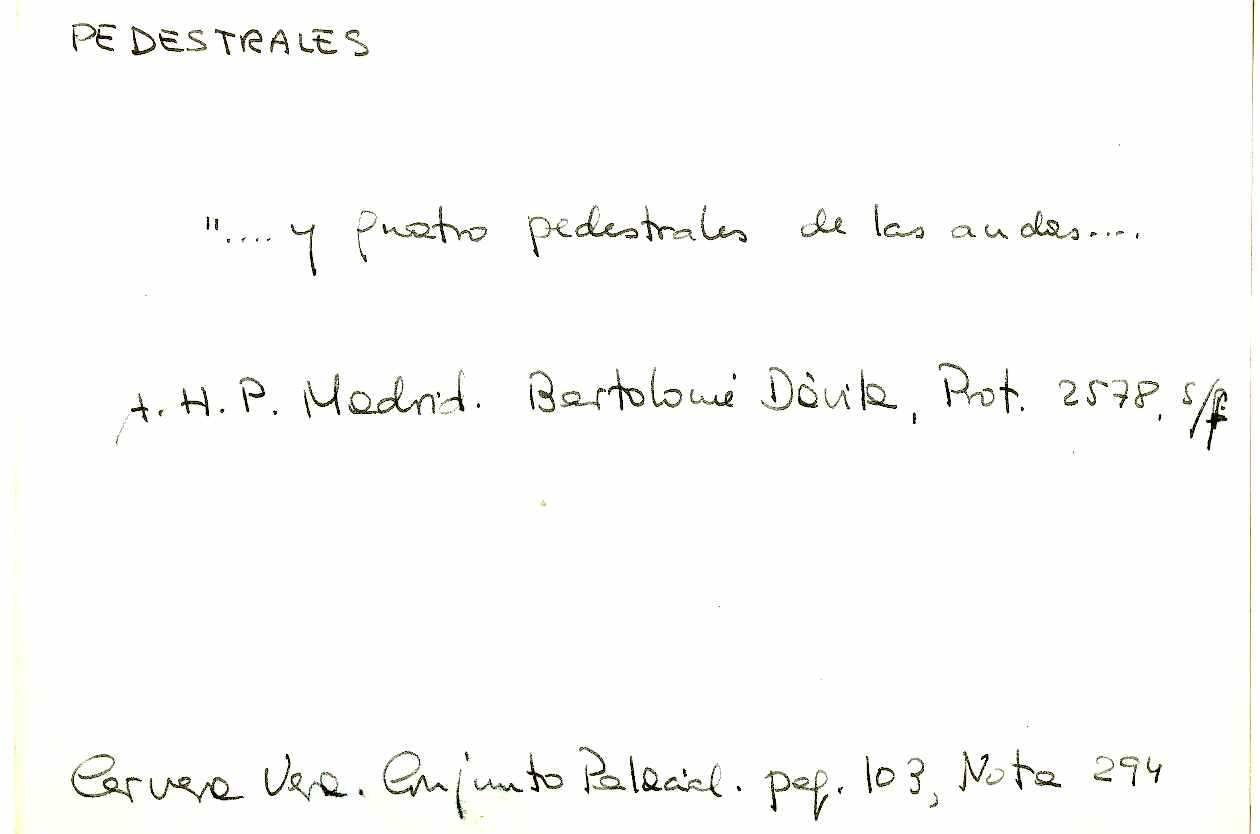 PEDESTRALES
".... y quatro pedestrales de las andas....
A. H. P. Madrid. Bartolomé Dávila, Prot. 2578, s/f.
Cervera Vera. Conjunto Palacial. pag. 103, Nota 294